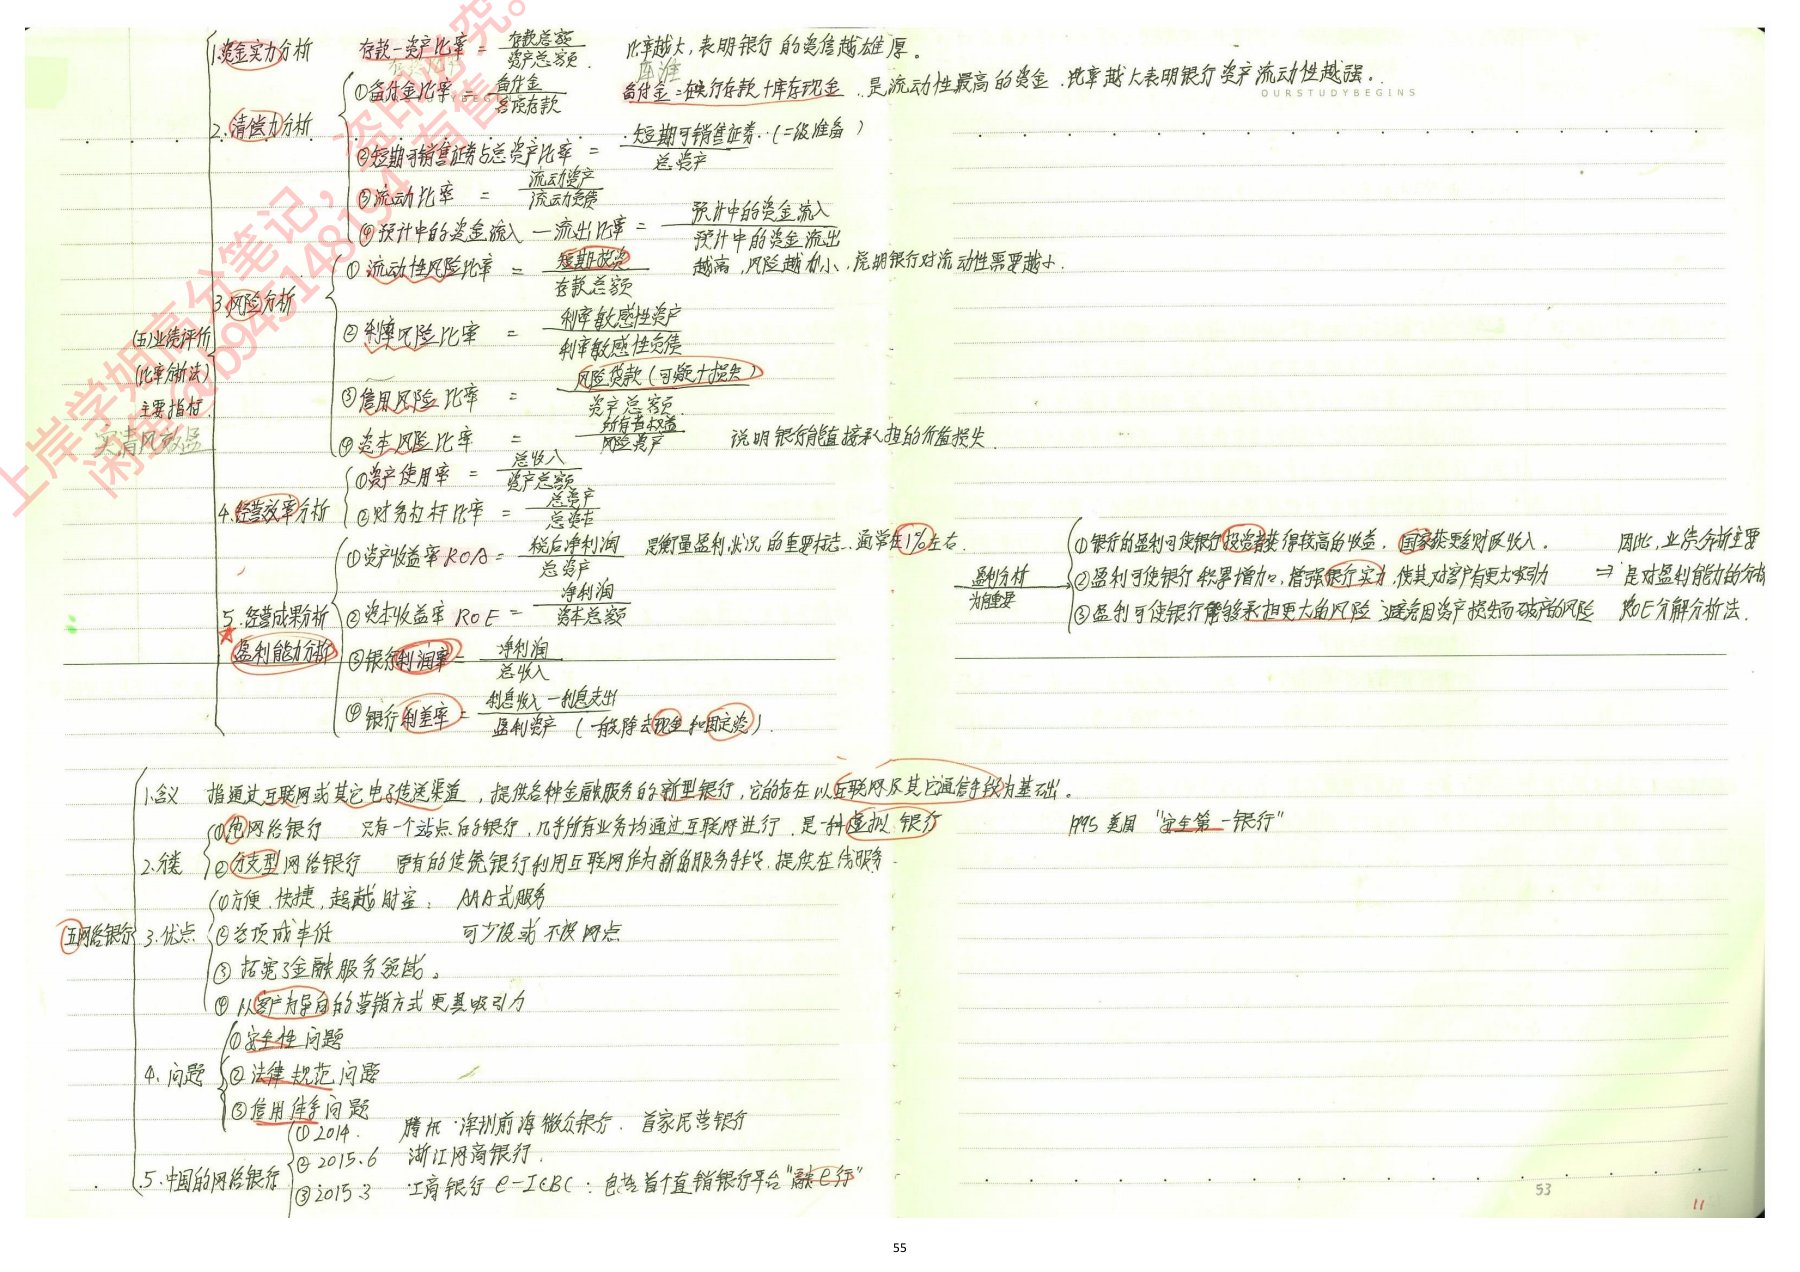 1.资金实力分析 存款一资产比率 = 存款总额 / 资产总额. 比率越大,表明银行的资信越雄厚。
库准
①备付金比率 = 备付金 / 各项存款 备付金=在央行存款+库存现金,是流动性最高的资金.比率越大表明银行资产流动性越强.
OURSTUDYBEGINS
2.清偿力分析
②短期可销售证券占总资产比率 = 短期可销售证券(二级准备) / 总资产
③流动比率 = 流动资产 / 流动负债
④预计中的资金流入一流出比率 = 预计中的资金流入 / 预计中的资金流出
①流动性风险比率 = 短期投资 / 存款总额 越高,风险越小,说明银行对流动性需要越小.
3.风险分析
(五)业绩评价
(比率分析法)
主要指标
②利率风险比率 = 利率敏感性资产 / 利率敏感性负债
③信用风险比率 = 风险贷款(可疑+损失) / 资产总额
实清风效盈
④资本风险比率 = 所有者权益 / 风险资产 说明银行能直接承担的价值损失.
①资产使用率 = 总收入 / 资产总额
4.经营效率分析
②财务杠杆比率 = 总资产 / 总资本
①资产收益率ROA = 税后净利润 / 总资产 是衡量盈利状况的重要标志.通常在1%左右.
5.经营成果分析
盈利能力分析
②资本收益率ROE = 净利润 / 资本总额
③银行利润率 = 净利润 / 总收入
④银行利差率 = 利息收入一利息支出 / 盈利资产(一般除去现金和固定资)
盈利分析
为何重要
①银行的盈利可使银行投资者获得较高的收益,国家获更多财政收入.
②盈利可使银行积累增加,增强银行实力,使其对客户有更大吸引力
③盈利可使银行能够承担更大的风险,避免因资产损失而破产的风险
因此,业绩分析主要
⇒是对盈利能力的分析
ROE分解分析法.
五网络银行
1.含义 指通过互联网或其它电子传送渠道,提供各种金融服务的新型银行,它的存在以互联网及其它通信手段为基础。
2.分类
①纯网络银行 只有一个站点的银行,几乎所有业务均通过互联网进行,是一种虚拟银行 1995美国"安全第一银行"
②分支型网络银行 原有的传统银行利用互联网作为新的服务手段,提供在线服务
3.优点
①方便.快捷,超越时空; AAA式服务
②各项成本低 可少设或不设网点
③拓宽了金融服务领域。
④以客户为导向的营销方式更具吸引力
4.问题
①安全性问题
②法律规范问题
③信用体系问题
5.中国的网络银行
①2014. 腾讯·深圳前海微众银行. 首家民营银行
②2015.6 浙江网商银行.
③2015.3 工商银行e-ICBC: 包括首个直销银行平台"融e行"
53
11
55
上岸学姐高分笔记,盗印必究。